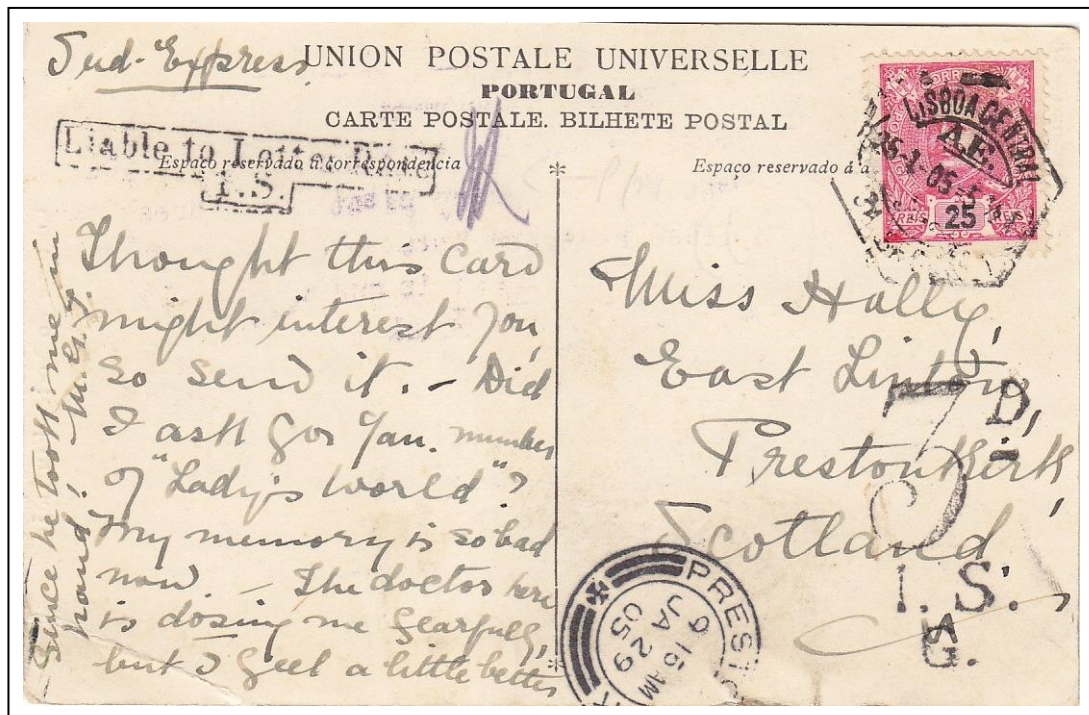 Sud-Express
UNION POSTALE UNIVERSELLE
PORTUGAL
CARTE POSTALE. BILHETE POSTAL
Liable to Letter Rate
I.S.
Espaço reservado á correspondencia
Espaço reservado á
LISBOA CENTRAL
25
Thought this card
might interest you,
so send it. – Did
I ask for Jan. number
of "Lady's World"?
My memory is so bad
now. – The doctor here
is dosing me fearfully,
but I feel a little better
since he took me in
hand!
Miss Hally,
East Linton,
Prestonkirk
Scotland.
3 D.
I.S.
G.
PRESTO
9 15 AM
JA 29
05